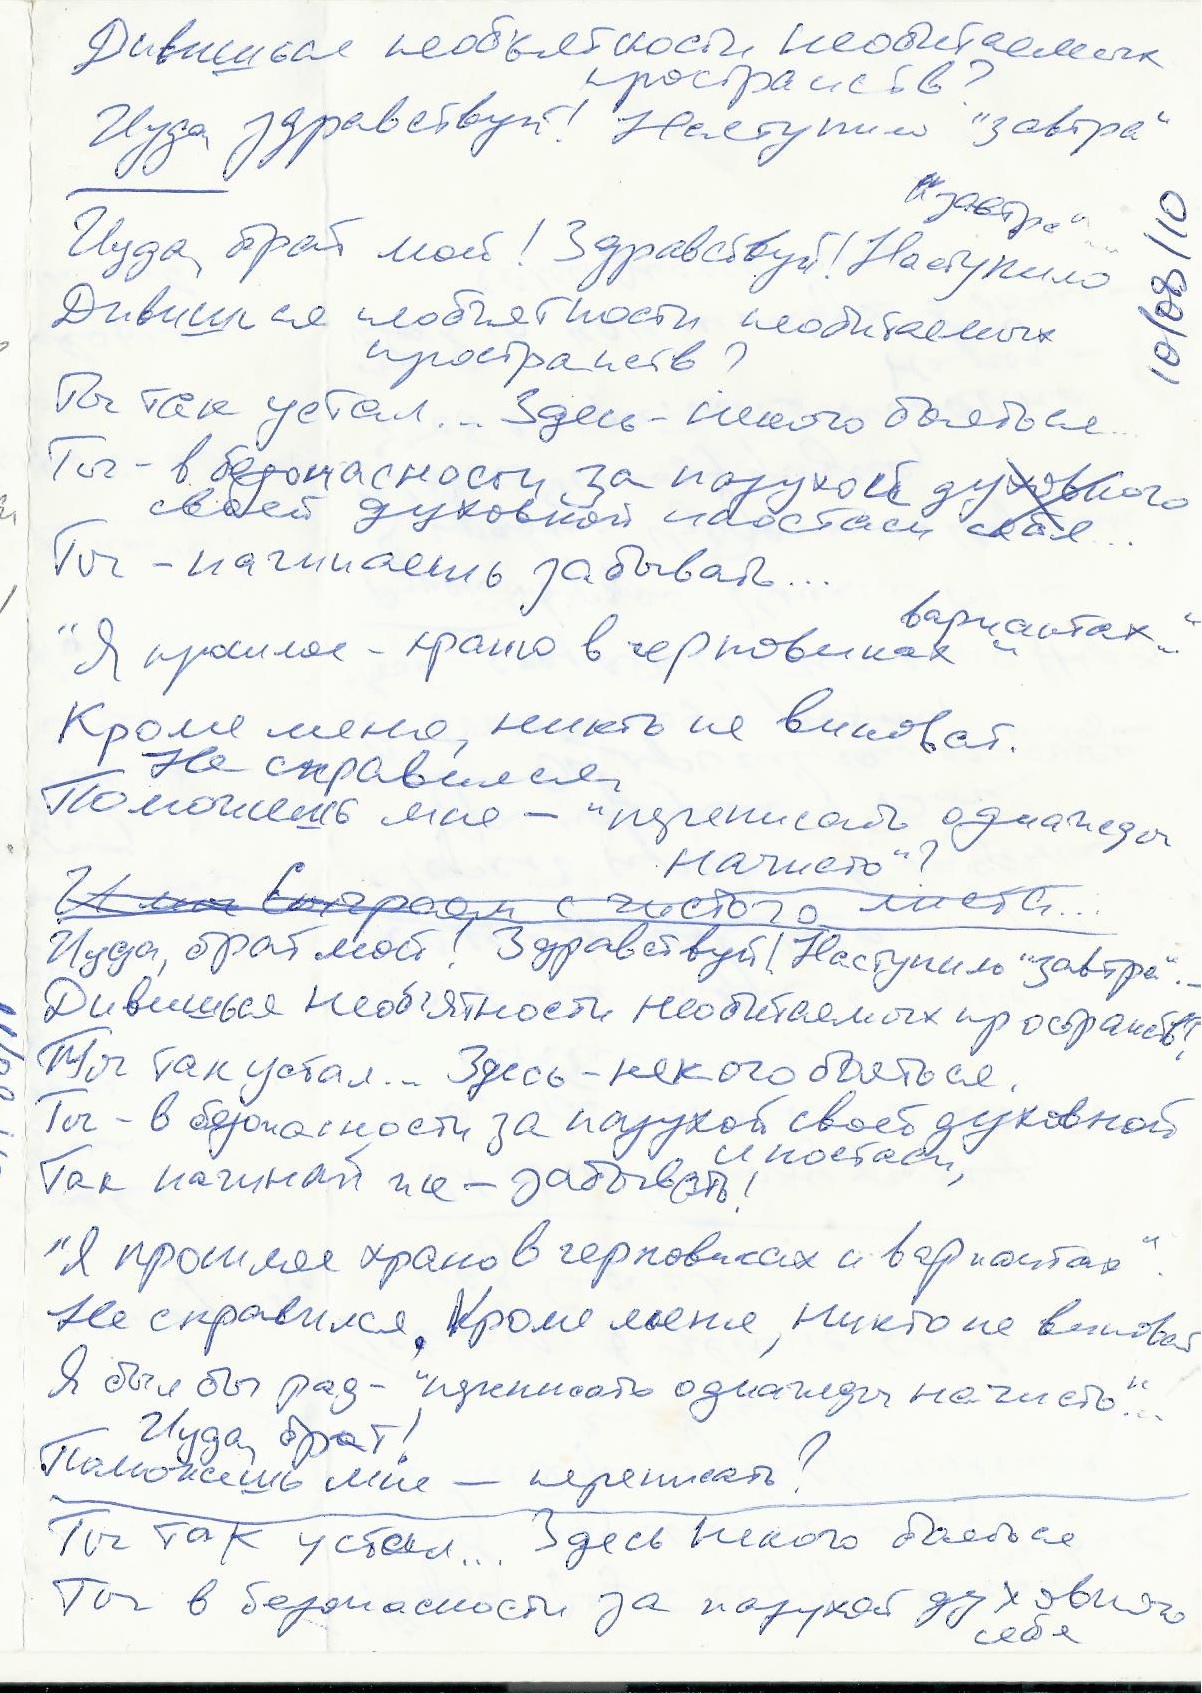 Дивишься необъятности необитаемых
пространств?
Иуда, здравствуй! Наступило "завтра"
"завтра"...
Иуда, брат мой! Здравствуй! Наступило
Дивишься необъятности необитаемых
пространств?
10/08/10
Ты так устал... Здесь - некого бояться...
Ты - в безопасности за пазухой духовного
своей духовной ипостаси себя...
Ты - начинаешь забывать...
вариантах..."
"Я прошлое - храню в черновиках и
Кроме меня, никто не виноват.
Не справился,
Поможешь мне - "переписать однажды
начисто"?
с чистого листа...
Иуда, брат мой! Здравствуй! Наступило "завтра"...
Дивишься необъятности необитаемых пространств?
Ты так устал... Здесь - некого бояться.
Ты - в безопасности за пазухой своей духовной
ипостаси,
Так начинай же - забывать!
"Я прошлое храню в черновиках и вариантах".
Не справился, Кроме меня, никто не виноват
Я был бы рад - "переписать однажды начисто"...
Иуда, брат!
Поможешь мне - переписать?
Ты так устал... Здесь некого бояться
Ты в безопасности за пазухой духовного
себя